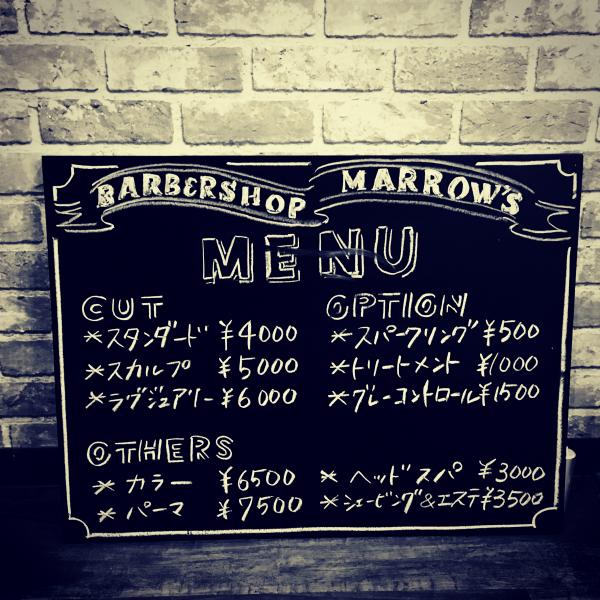 BARBERSHOP MARROW'S
MENU
CUT
*スタンダード ¥4000
*スカルプ ¥5000
*ラグジュアリー ¥6000
OPTION
*スパークリング ¥500
*トリートメント ¥1000
*グレーコントロール ¥1500
OTHERS
*カラー ¥6500
*パーマ ¥7500
*ヘッドスパ ¥3000
*シェービング&エステ ¥3500